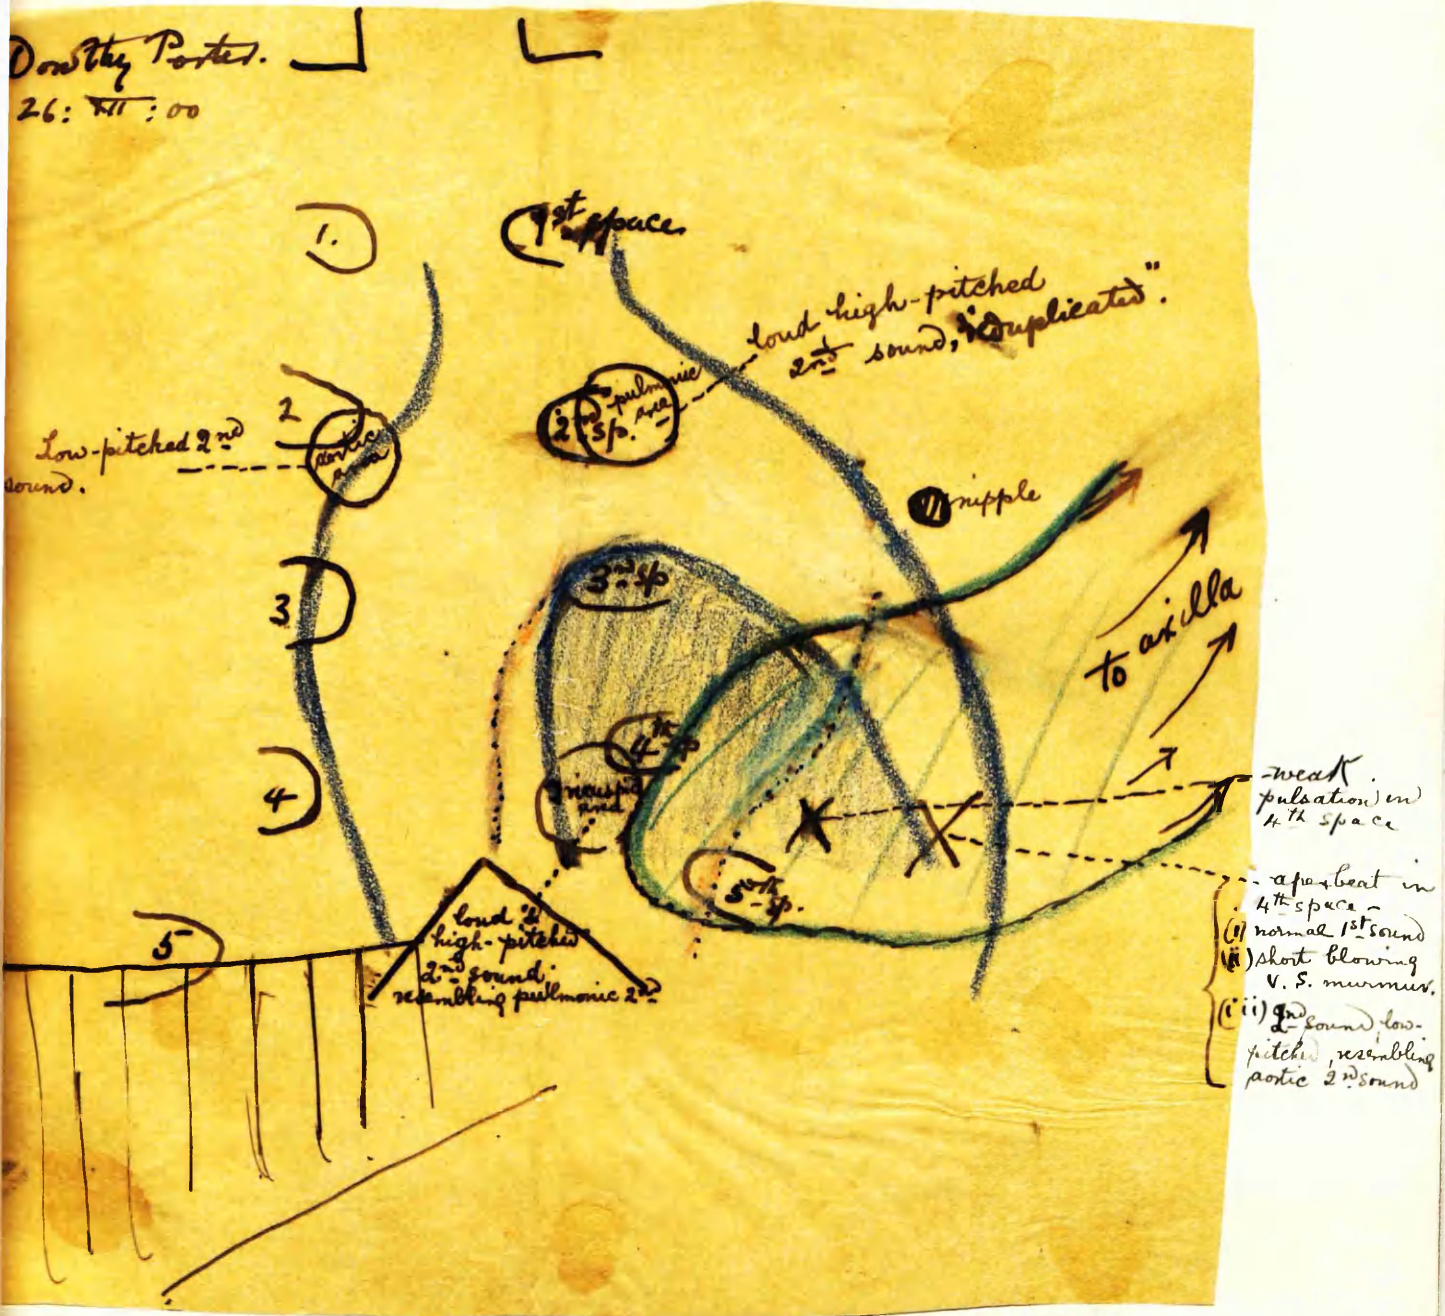 Dorothy Porter.
26: VII : 00
1.
1st space.
loud high-pitched
2nd sound, "reduplicated".
2
aortic
area
Low-pitched 2nd
sound.
2nd
sp.
pulmonic
area
nipple
3
3rd sp
to axilla
4
4th sp
Tricuspid
area
5th
sp.
5
loud &
high-pitched
2nd sound
resembling pulmonic 2nd
-weak
pulsation in
4th space
apex beat in
4th space -
(i) normal 1st sound
(ii) short blowing
V. S. murmur.
(iii) 2nd sound, low-
pitched, resembling
aortic 2nd sound